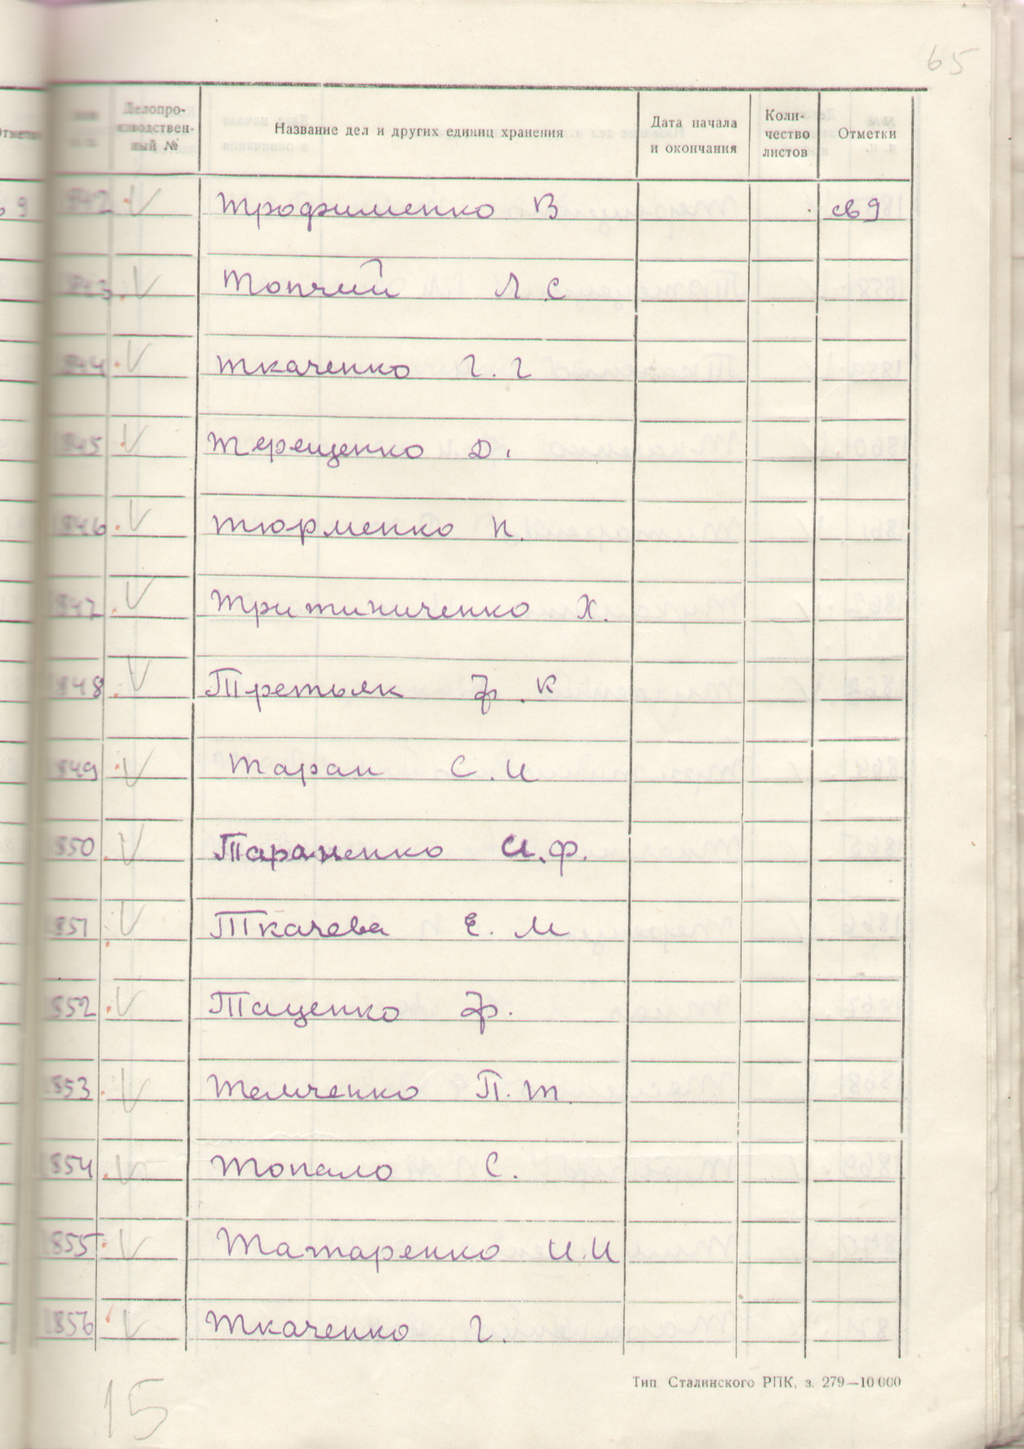 65
Делопро-
изводствен-
ный №
Название дел и других единиц хранения
Дата начала
и окончания
Коли-
чество
листов
Отметки
1842 V Трофименко В св 9
1843 V Топчий Л С
1844 V Ткаченко Г. Г
1845 V Терещенко Д.
1846 V Тюрменко П.
1847 V Тритиниченко Х.
1848 V Третьяк Ф. К
1849 V Таран С. И
1850 V Тараненко И. Ф.
1851 V Ткачева Е. М
1852 V Таценко Ф.
1853 V Темченко П. Т
1854 V Топало С.
1855 V Татаренко И. И
1856 V Ткаченко Г.
Тип Сталинского РПК, з. 279—10 000
15